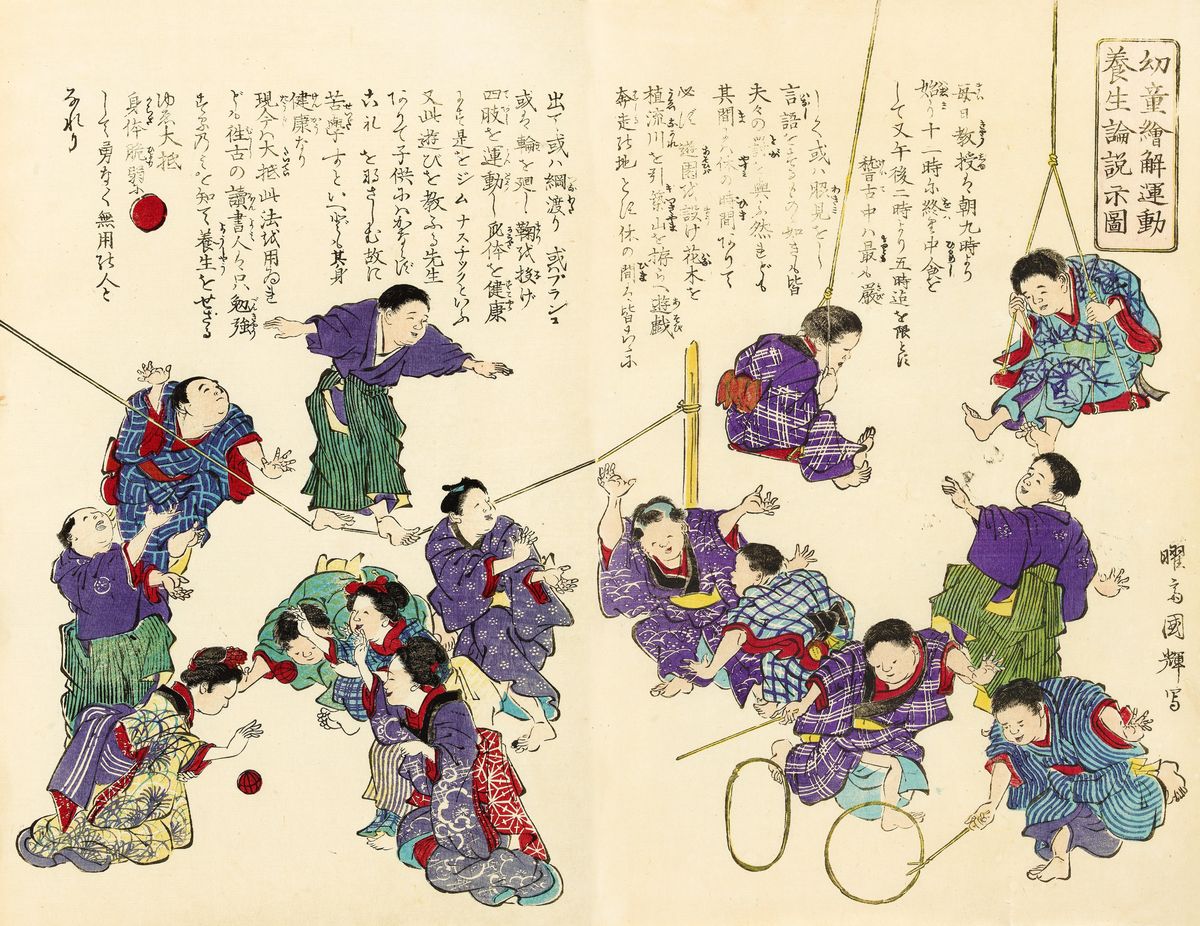 幼童繪解運動
養生論説示圖
毎日教授ハ朝九時より
始り十一時に終里中食を
して又午後二時より五時迄を限とす
稽古中ハ最も嚴
しく或ハ脇見をし
言語をするものゝ如きも皆
夫々の罰を與ふ然れども
其間々休の時間ありて
必ず遊園を設け花木を
植流川を引築山を拵らへ遊戯
奔走の地とす休の間ハ皆こゝに
出て或ハ綱渡り或ハブランコ
或ハ輪を廻し鞠を投げ
四肢を運動し身体を健康
にす是をジムナスチックといふ
又此遊びを教ふる先生
ありて子供にハかならず
礼を那さしむ故に
苦學すといへども其身
健康なり
現今ハ大抵此法を用ゐれ
ども往古の讀書人ハ只勉強
するのミを知て養生をせざる
ゆゑ大抵
身体脆弱に
して勇なく無用の人と
なれり
曜斎國輝写